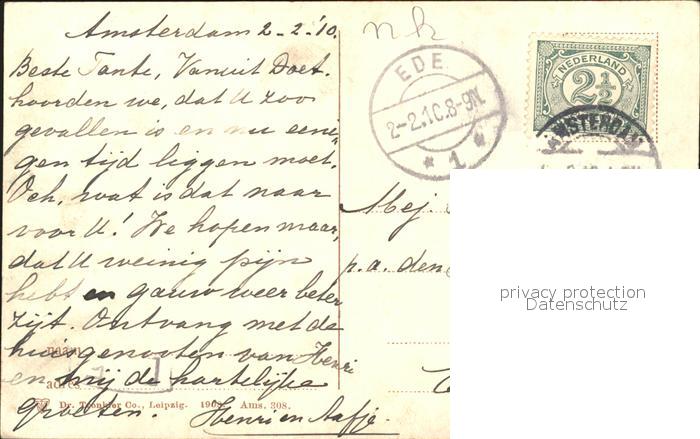 Amsterdam 2-2-'10
Beste Tante, Vanuit Doet.
hoorden we, dat U zoo
gevallen is en nu eeni-
gen tijd liggen moet.
Och, wat is dat naar
voor U! We hopen maar,
dat U weinig pijn
hebt en gauw weer beter
zijt. Ontvang met de
huisgenooten van Henri
en mij de hartelijke
groeten. Henri en Aafje.
naam
adres
Dr. Trenkler Co., Leipzig. 1908. Ams. 308.
n k
EDE
2-2.10.8-9N.
* 1 *
NEDERLAND
2½
AMSTERDAM
Mej.
p.a. den
privacy protection
Datenschutz